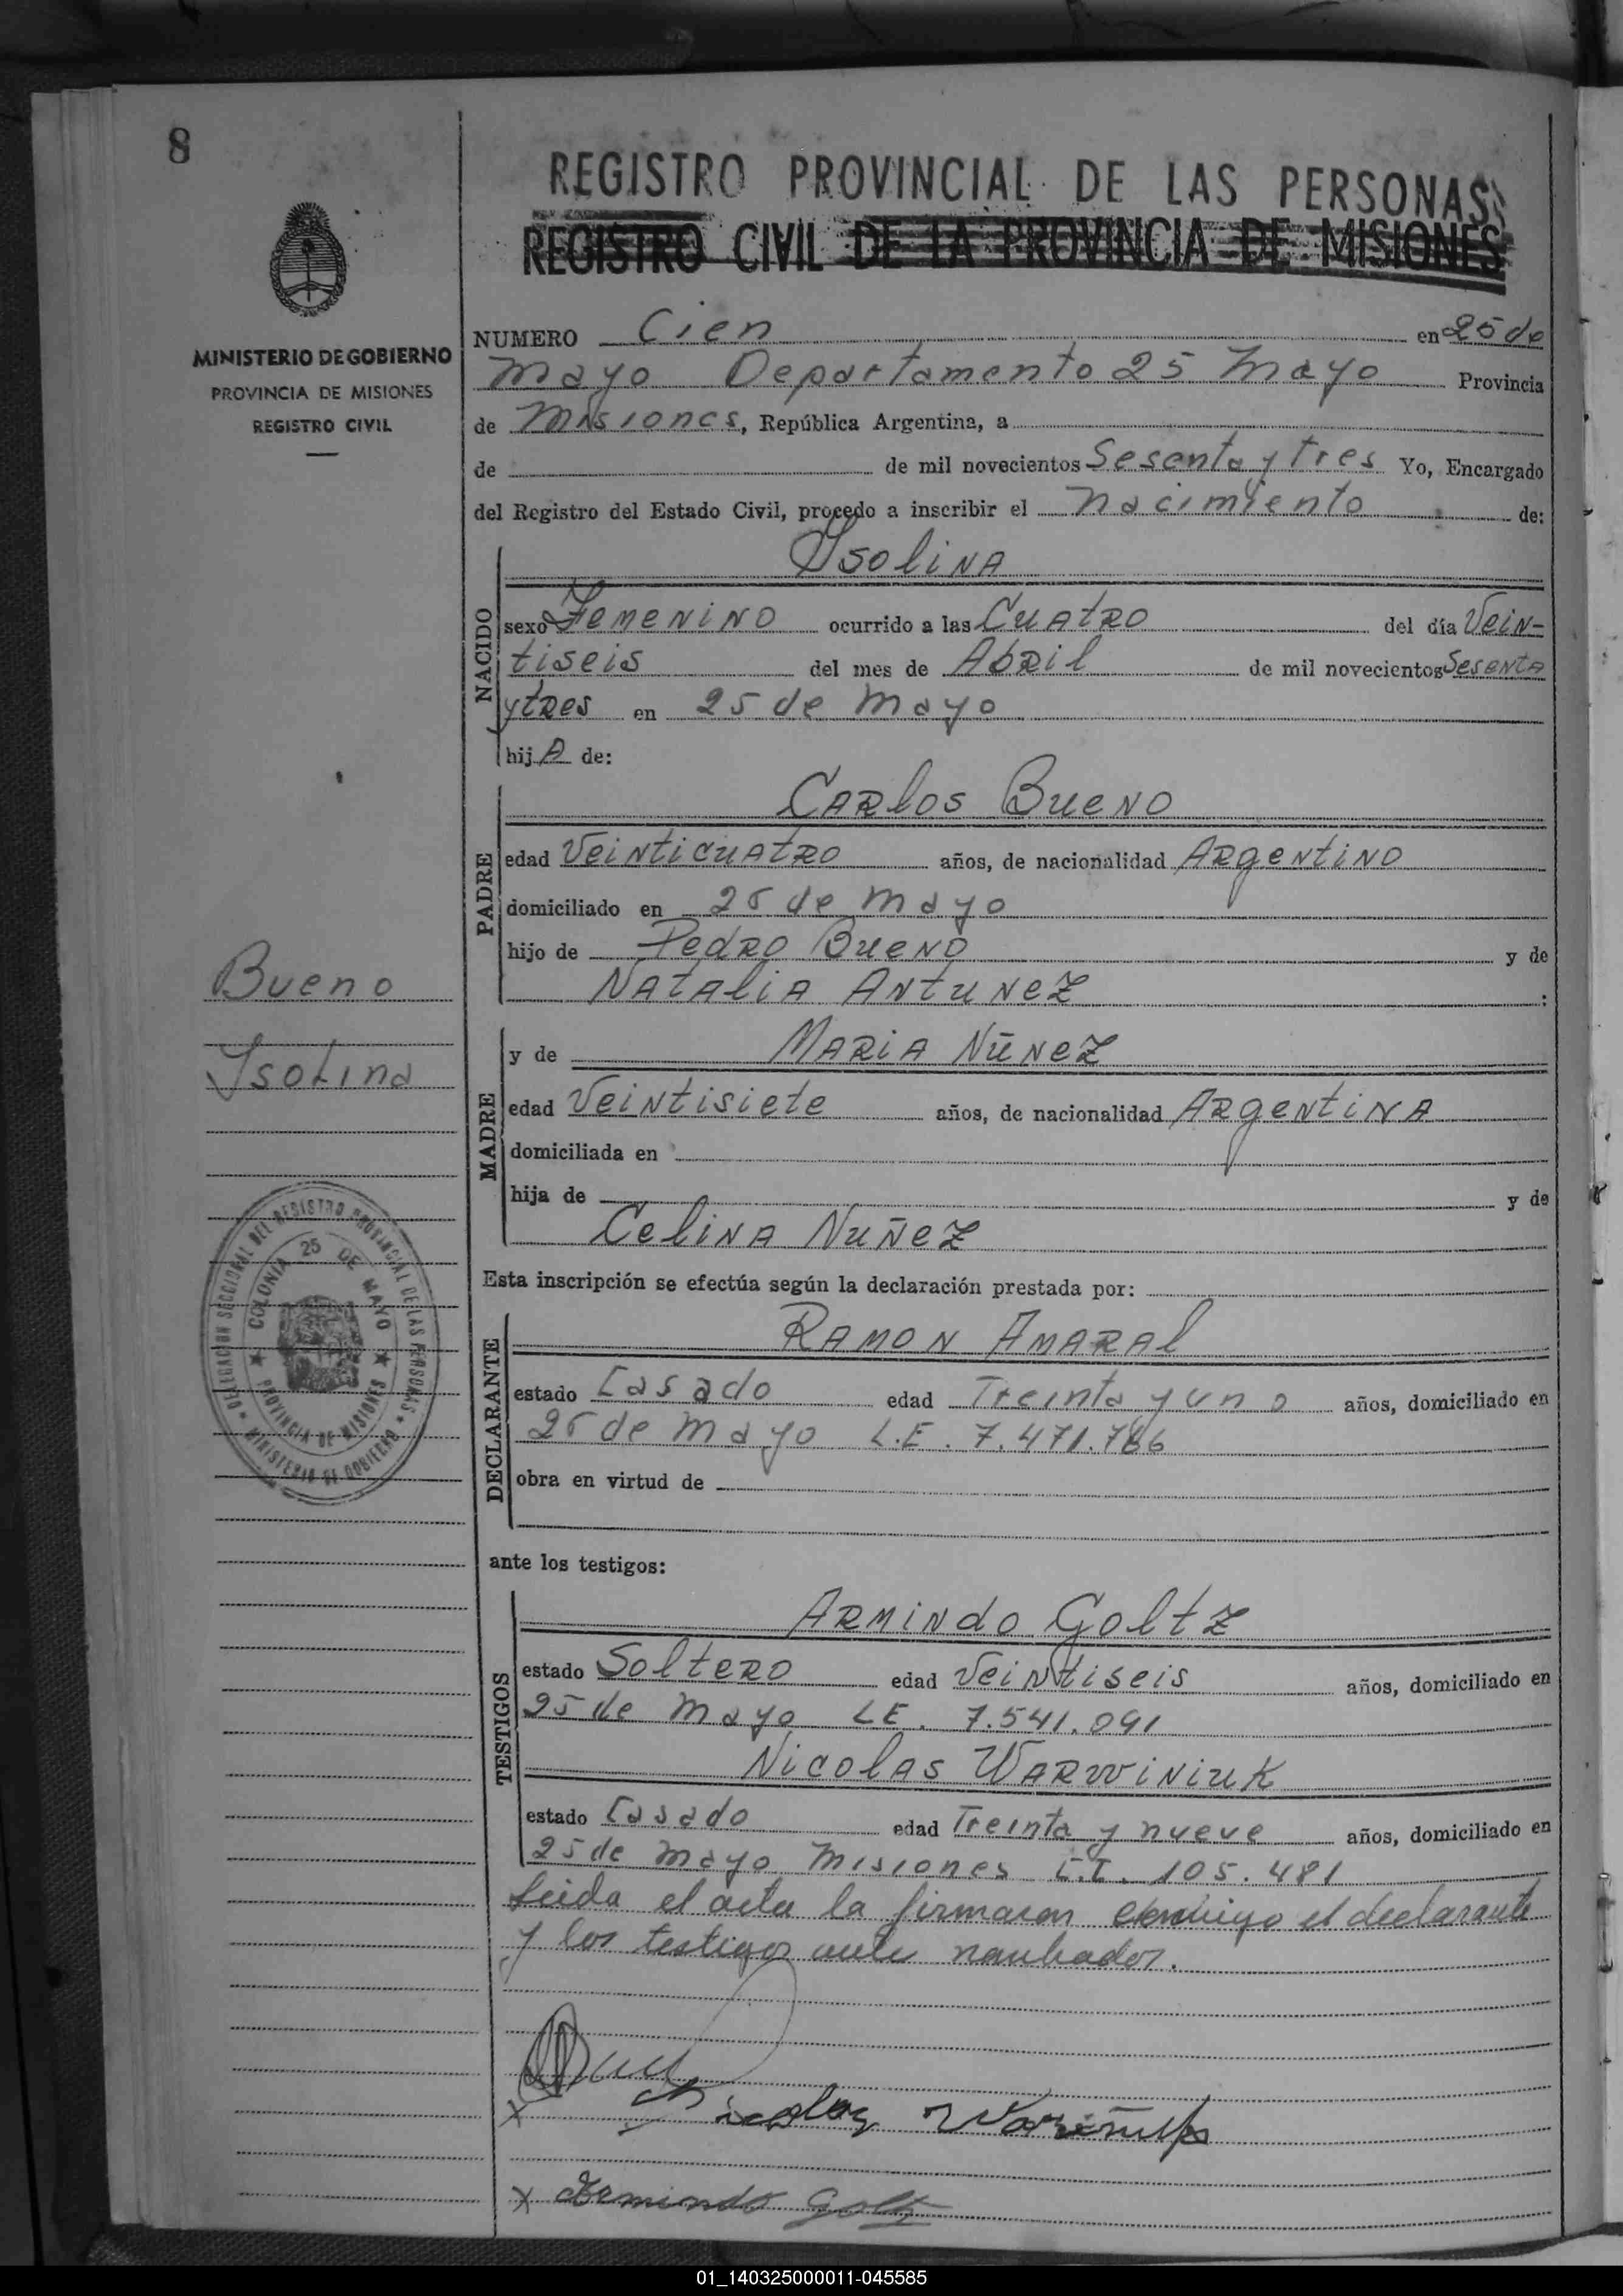 8
REGISTRO PROVINCIAL DE LAS PERSONAS
REGISTRO CIVIL DE LA PROVINCIA DE MISIONES
MINISTERIO DE GOBIERNO
PROVINCIA DE MISIONES
REGISTRO CIVIL
NUMERO Cien en 25 de
Mayo Departamento 25 Mayo Provincia
de Misiones, República Argentina, a
de de mil novecientos Sesenta y tres Yo, Encargado
del Registro del Estado Civil, procedo a inscribir el nacimiento de:
NACIDO
Ysolina
sexo Femenino ocurrido a las Cuatro del día Vein-
tiseis del mes de Abril de mil novecientos Sesenta
y tres en 25 de Mayo
hij A de:
PADRE
Carlos Bueno
edad Veinticuatro años, de nacionalidad Argentino
domiciliado en 25 de Mayo
hijo de Pedro Bueno y de
Natalia Antunez :
Bueno
Ysolina
MADRE
y de Maria Nūnez
edad Veintisiete años, de nacionalidad Argentina
domiciliada en
hija de y de
Celina Nuñez
DELEGACION SECCIONAL DEL REGISTRO PROVINCIAL DE LAS PERSONAS
COLONIA 25 DE MAYO
PROVINCIA DE MISIONES
MINISTERIO DE GOBIERNO
Esta inscripción se efectúa según la declaración prestada por:
DECLARANTE
Ramon Amaral
estado Casado edad Treinta y uno años, domiciliado en
25 de Mayo L.E. 7.471.786
obra en virtud de
ante los testigos:
TESTIGOS
Armindo Goltz
estado Soltero edad Veintiseis años, domiciliado en
25 de Mayo LE. 7.541.091
Nicolas Warwiniuk
estado Casado edad Treinta y nueve años, domiciliado en
25 de Mayo Misiones 105.481
Leida el acta la firmaron conmigo el declarante
y los testigos ante nombados.
Armindo Goltz
01_140325000011-045585